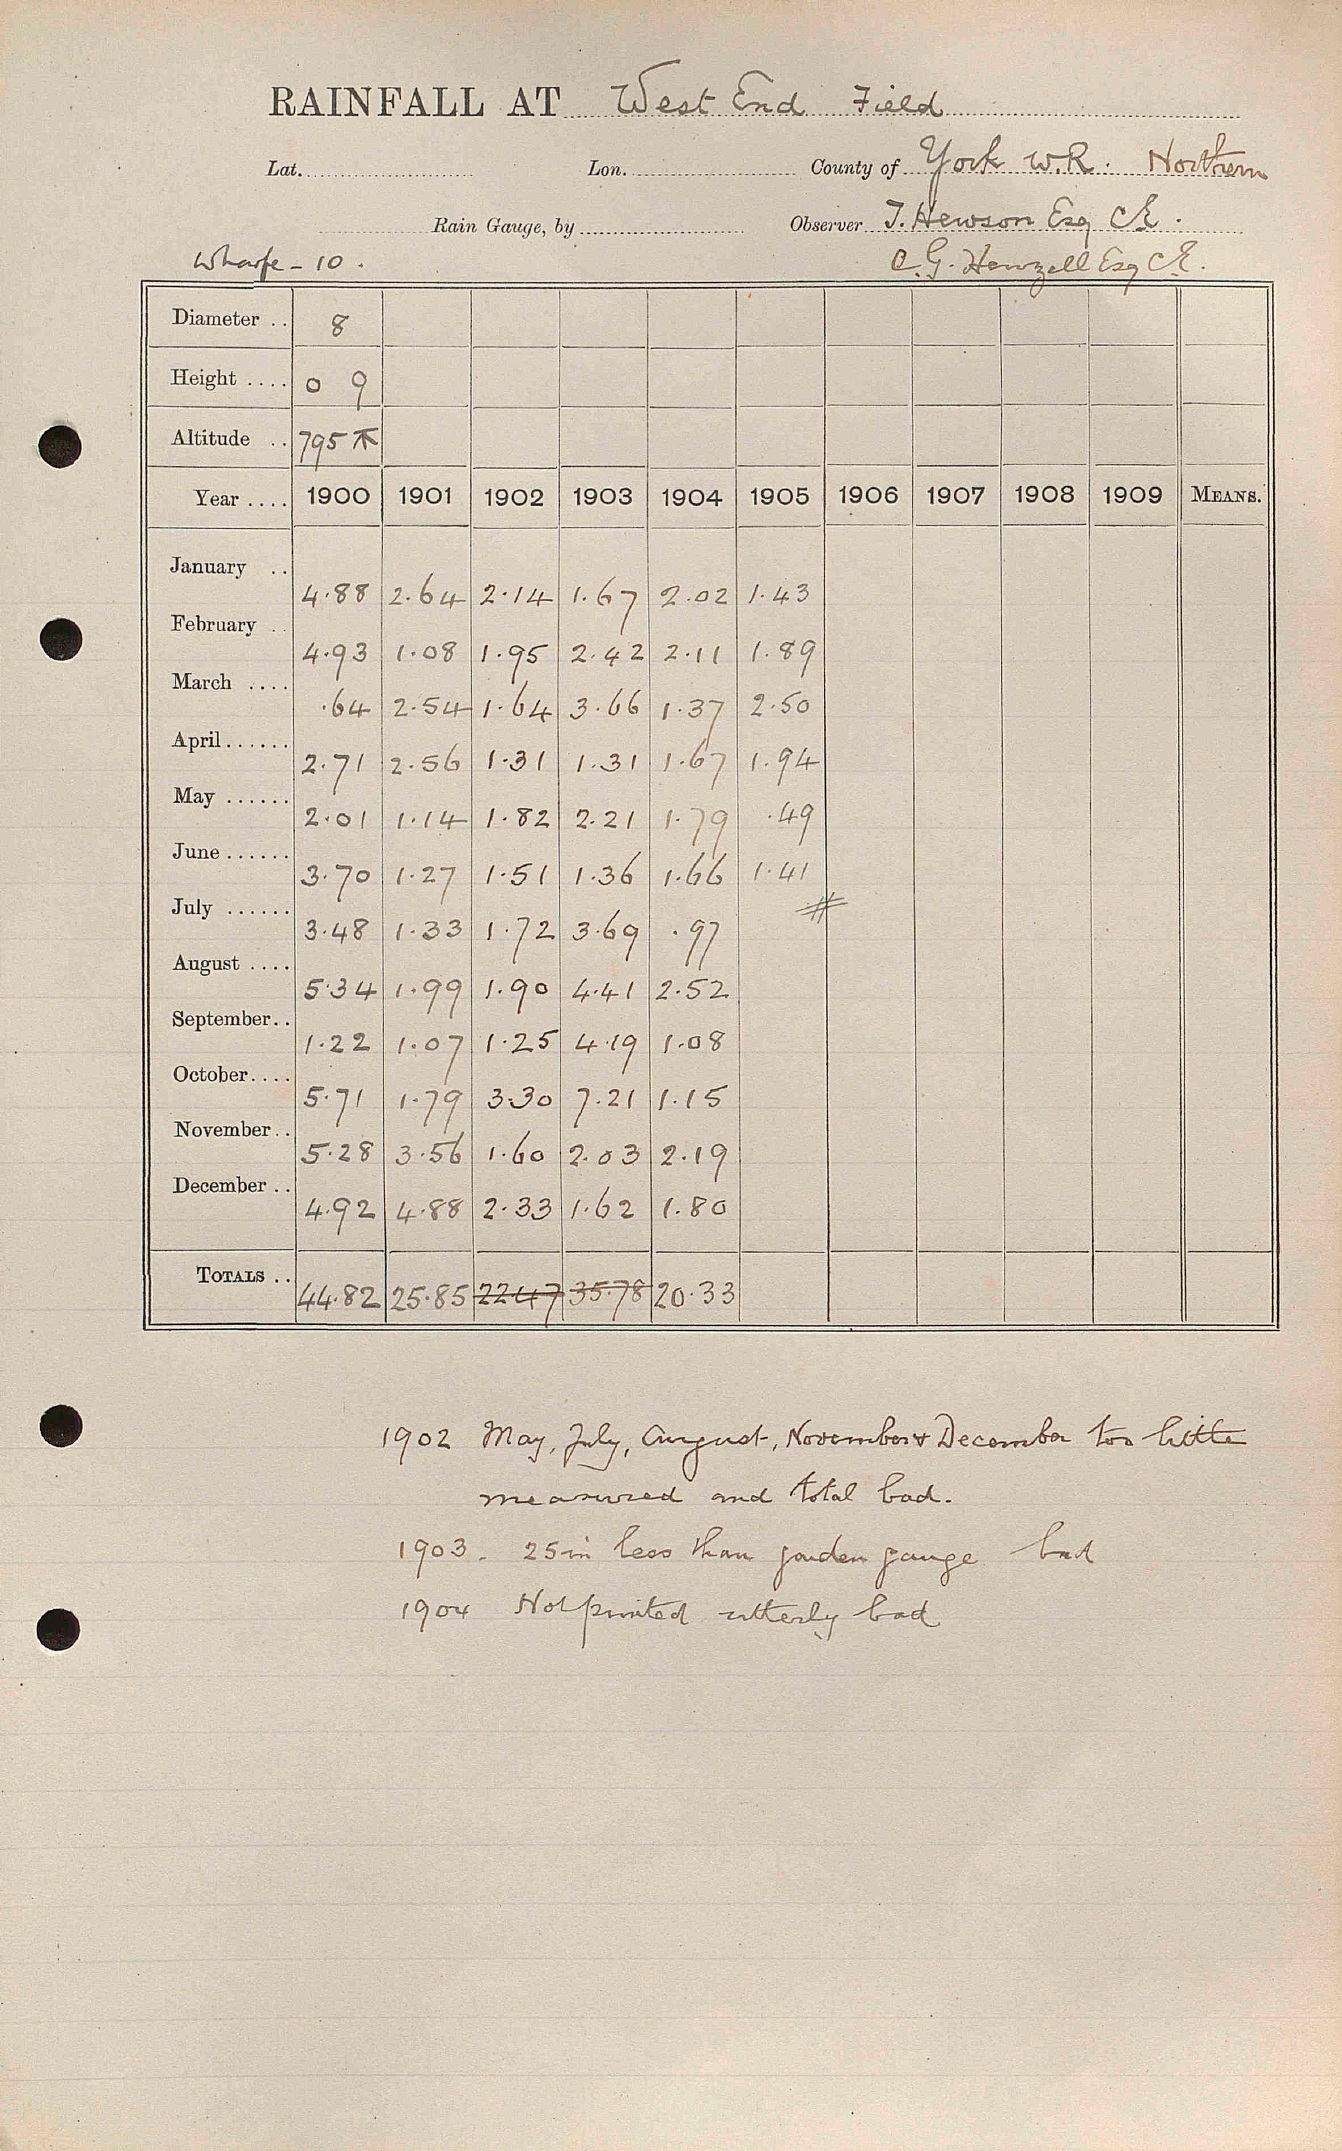 RAINFALL AT West End Field
Lat. Lon. County of York W.R. Northern
Rain Gauge, by Observer T. Hewson Esq C.E.
Wharfe - 10. C. G. Henzell Esq C.E.
Diameter .. 8
Height .... 0 9
Altitude .. 795
Year .... 1900 1901 1902 1903 1904 1905 1906 1907 1908 1909 MEANS.
January .. 4.88 2.64 2.14 1.67 2.02 1.43
February .. 4.93 1.08 1.95 2.42 2.11 1.89
March .... .64 2.54 1.64 3.66 1.37 2.50
April...... 2.71 2.56 1.31 1.31 1.67 1.94
May ...... 2.01 1.14 1.82 2.21 1.79 .49
June ...... 3.70 1.27 1.51 1.36 1.66 1.41
July ...... 3.48 1.33 1.72 3.69 .97
August .... 5.34 1.99 1.90 4.41 2.52
September.. 1.22 1.07 1.25 4.19 1.08
October.... 5.71 1.79 3.30 7.21 1.15
November.. 5.28 3.56 1.60 2.03 2.19
December .. 4.92 4.88 2.33 1.62 1.80
TOTALS .. 44.82 25.85 22.47 35.78 20.33
1902 May, July, August, November & December too little
measured and total bad.
1903. 25 in less than garden gauge bad
1904 Not printed utterly bad